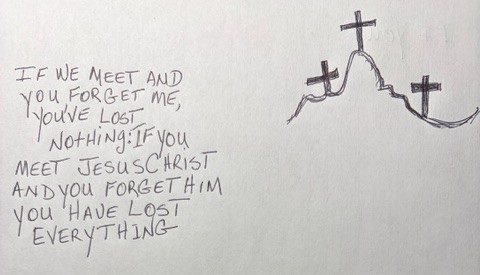 IF WE MEET AND
YOU FORGET ME,
YOU'VE LOST
NOTHING: IF YOU
MEET JESUS CHRIST
AND YOU FORGET HIM
YOU HAVE LOST
EVERYTHING